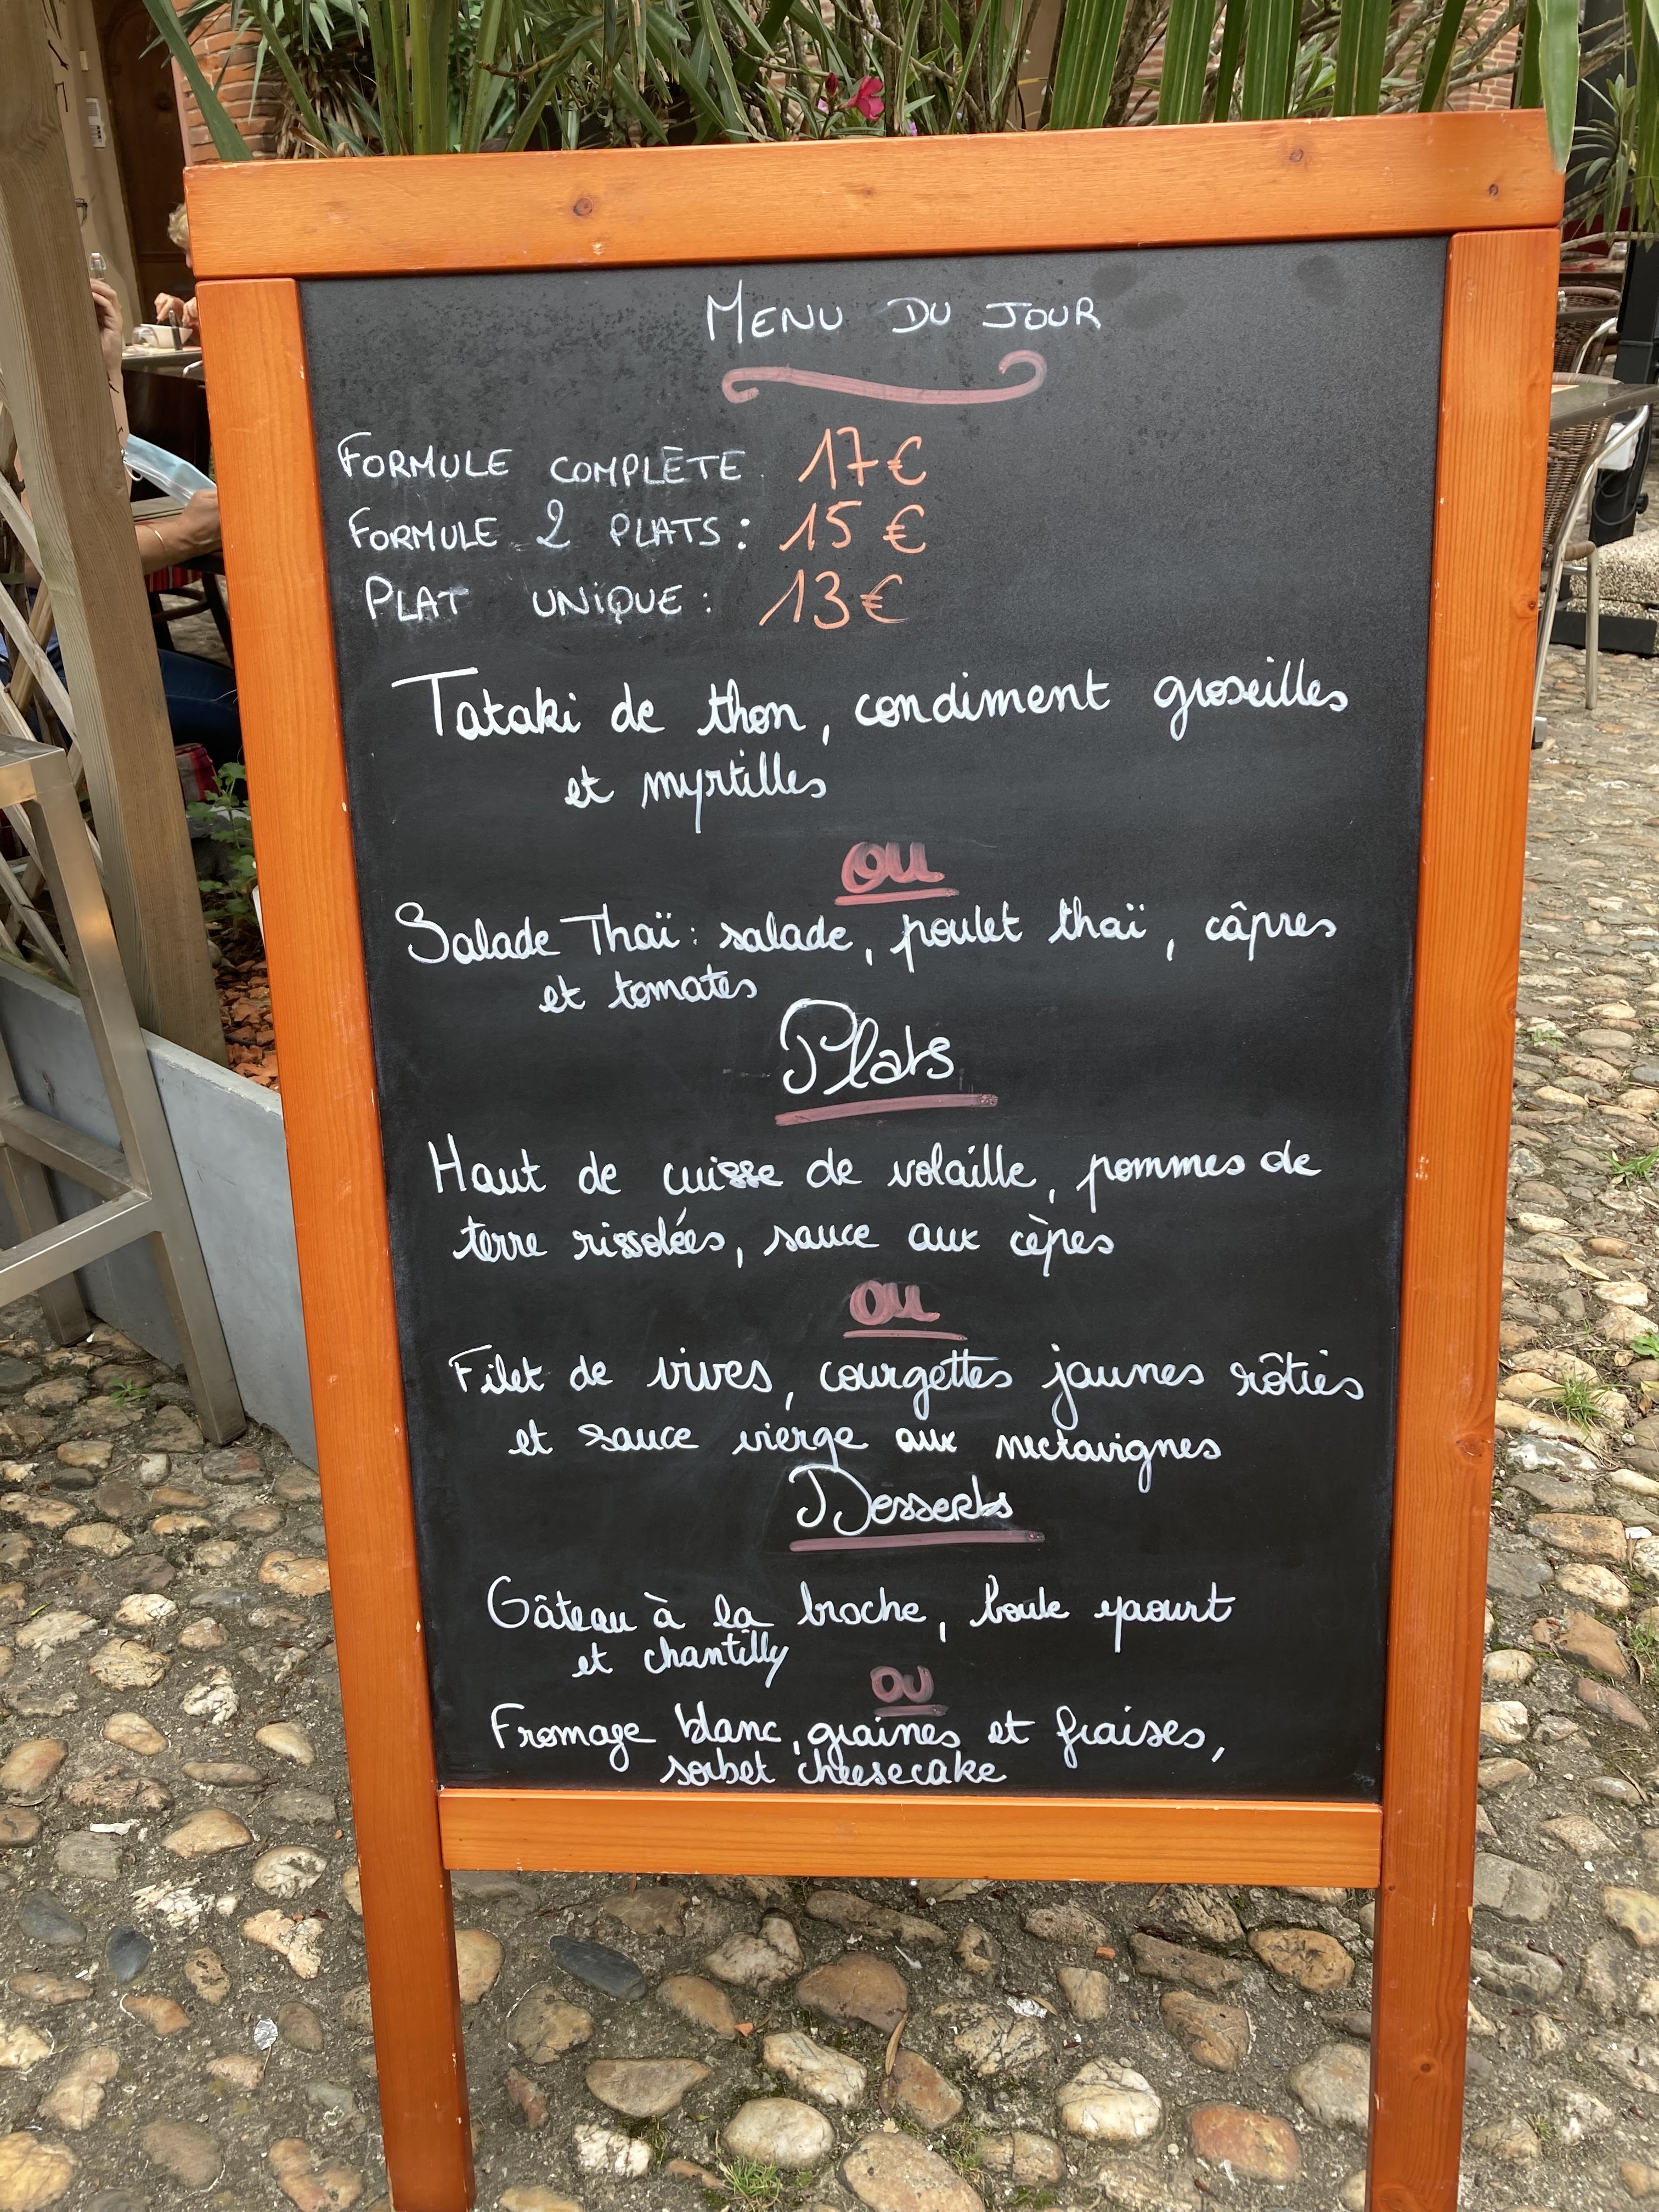 MENU DU JOUR
FORMULE COMPLÈTE 17€
FORMULE 2 PLATS : 15 €
PLAT UNIQUE : 13€
Tataki de thon, condiment groseilles
et myrtilles
ou
Salade Thaï : salade, poulet thaï, câpres
et tomates
Plats
Haut de cuisse de volaille, pommes de
terre rissolées, sauce aux cèpes
ou
Filet de vives, courgettes jaunes rôties
et sauce vierge aux nectavignes
Desserts
Gâteau à la broche, boule yaourt
et chantilly
OU
Fromage blanc, graines et fraises,
sorbet cheesecake